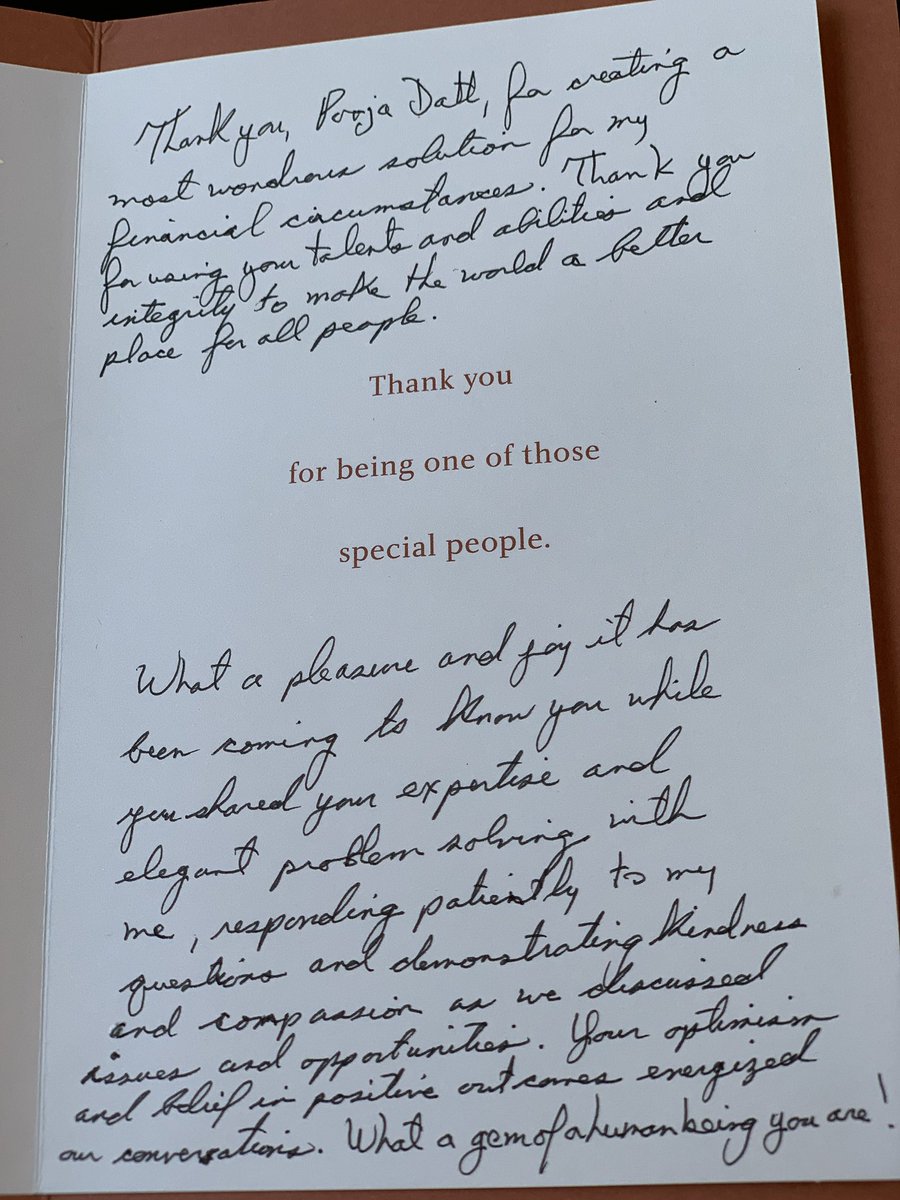 Thank you, Pooja Datt, for creating a
most wondrous solution for my
financial circumstances. Thank you
for using your talents and abilities and
integrity to make the world a better
place for all people.
Thank you
for being one of those
special people.
What a pleasure and joy it has
been coming to know you while
you shared your expertise and
elegant problem solving with
me, responding patiently to my
questions and demonstrating kindness
and compassion as we discussed
issues and opportunities. Your optimism
and belief in positive outcomes energized
our conversations. What a gem of a human being you are!